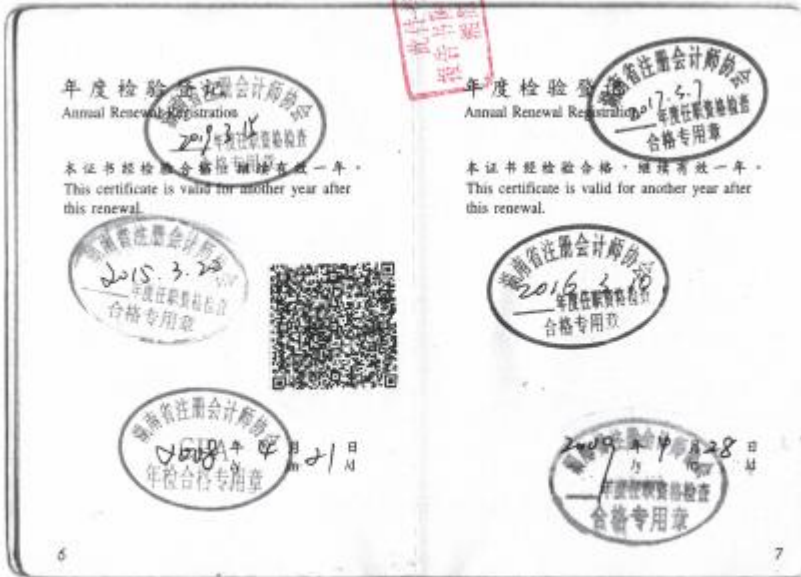 年度检验登记
Annual Renewal Registration
湖南省注册会计师协会
年度任职资格检查
合格专用章
本证书经检验合格，继续有效一年。
This certificate is valid for another year after
this renewal.
湖南省注册会计师协会
2015.3.20
年度任职资格检查
合格专用章
湖南省注册会计师协会
CPA
2008年4月21日
/y /m /d
年检合格专用章
6
年度检验登记
Annual Renewal Registration
湖南省注册会计师协会
2017.3.7
年度任职资格检查
合格专用章
本证书经检验合格，继续有效一年。
This certificate is valid for another year after
this renewal.
湖南省注册会计师协会
2016.3.10
年度任职资格检查
合格专用章
2009年4月28日
/y /m /d
年度任职资格检查
合格专用章
7